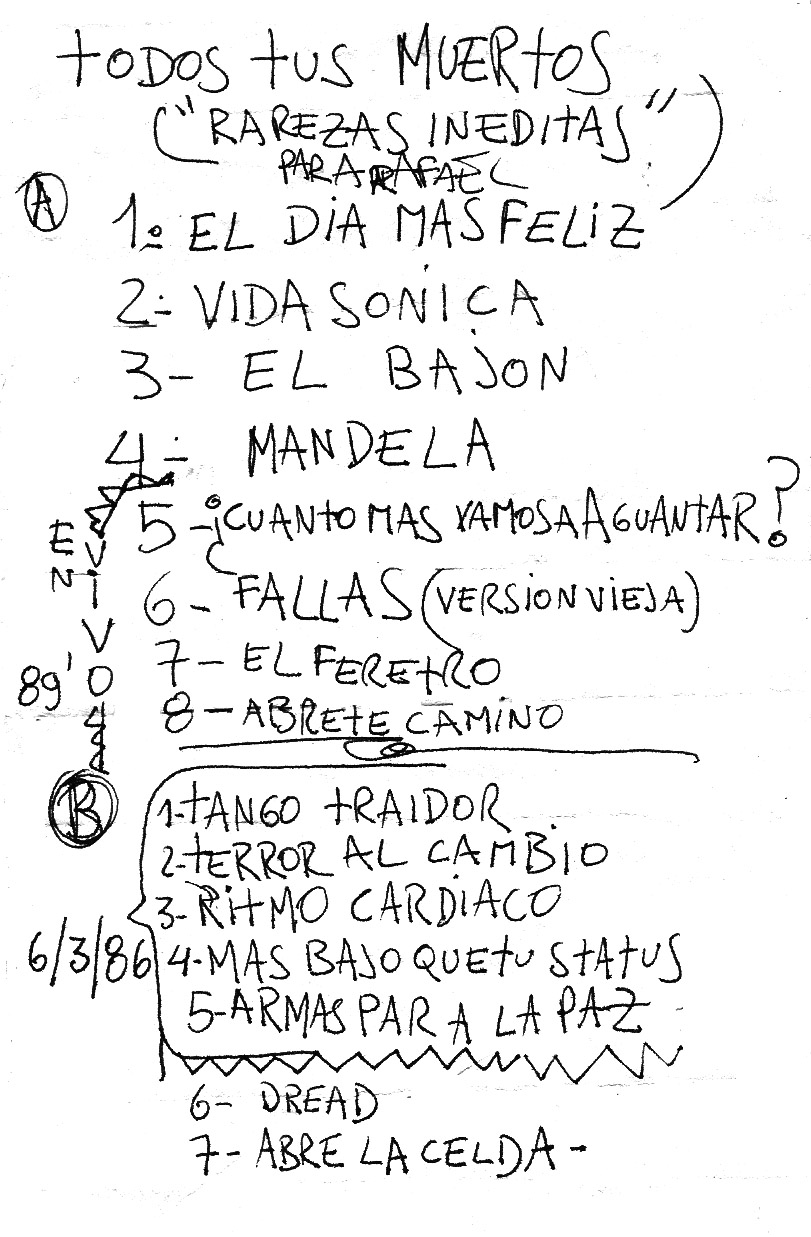 TODOS TUS MUERTOS
("RAREZAS INEDITAS")
PARA RAFAEL
A
1º EL DIA MAS FELIZ
2- VIDA SONICA
3- EL BAJON
4- MANDELA
5- ¿CUANTO MAS VAMOS A AGUANTAR?
6- FALLAS (VERSION VIEJA)
7- EL FERETRO
8- ABRETE CAMINO
EN VIVO
89'
B
1-TANGO TRAIDOR
2-TERROR AL CAMBIO
3-RITMO CARDIACO
6/3/86
4-MAS BAJO QUE TU STATUS
5-ARMAS PARA LA PAZ
6- DREAD
7- ABRE LA CELDA -